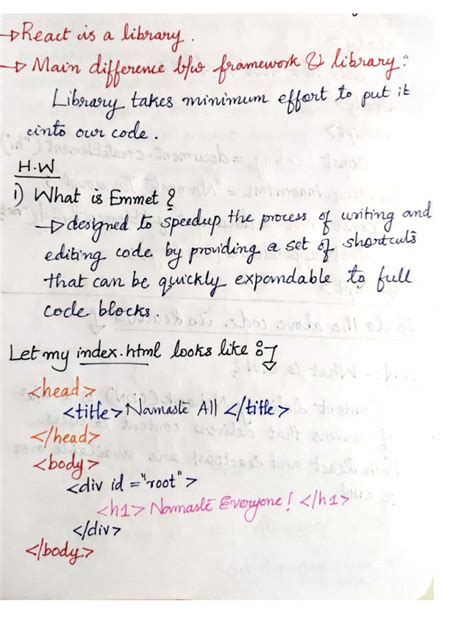 → React is a library.
→ Main difference b/w framework & library:
Library takes minimum effort to put it
into our code.
H.W
1) What is Emmet?
→ designed to speedup the process of writing and
editing code by providing a set of shortcuts
that can be quickly expandable to full
code blocks.
Let my index.html looks like :-
<head>
<title> Namaste All </title>
</head>
<body>
<div id ="root">
<h1> Namaste Everyone! </h1>
</div>
</body>